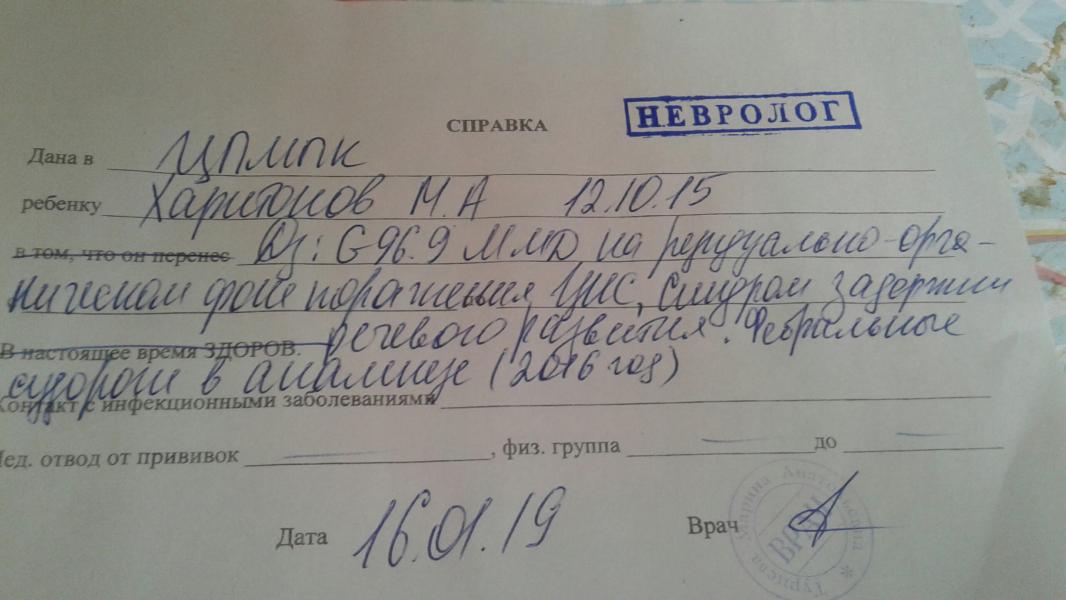 НЕВРОЛОГ
СПРАВКА
Дана в ЦПМПК
ребенку Харитонов М.А 12.10.15
в том, что он перенес Дз: G96.9 ММД на резидуально-орга-
ническом фоне поражения ЦНС, Синдром задержки
В настоящее время ЗДОРОВ. речевого развития. Фебрильные
судороги в анамнезе (2016 год)
Контакт с инфекционными заболеваниями
Мед. отвод от прививок , физ. группа до
Дата 16.01.19 Врач
Марина Анатольевна
ВРАЧ